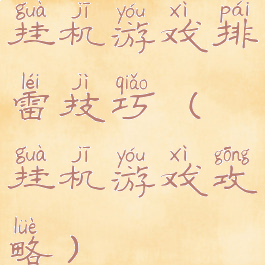 guà jī yóu xì pái
挂机游戏排
léi jì qiǎo
雷技巧（
guà jī yóu xì gōng
挂机游戏攻
lüè
略）